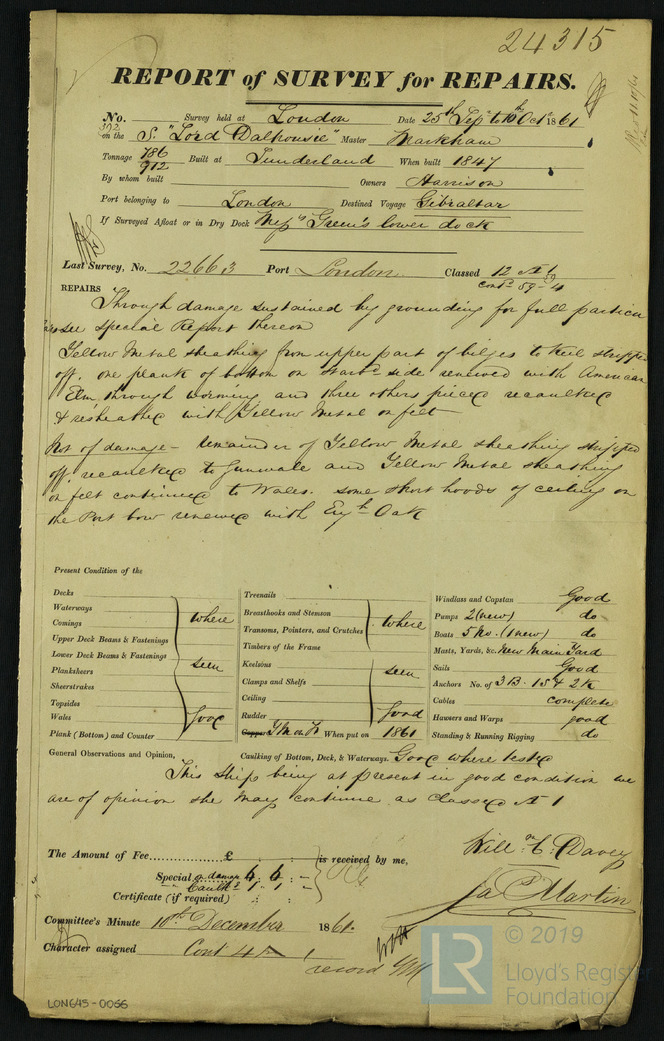 24315
REPORT of SURVEY for REPAIRS.
No. 302 Survey held at London Date 25th Sep to 10th Oct 1861
on the S. "Lord Dalhousie" Master Markham
Tonnage 786 912 Built at Sunderland When built 1847
By whom built Owners Harrison
Port belonging to London Destined Voyage Gibraltar
If Surveyed Afloat or in Dry Dock Messrs Green's lower dock
Last Survey, No. 22663 Port London Classed 12 A 1
Contd 59-4
REPAIRS Through damage sustained by grounding for full particu
lars see Special Report thereon
Yellow Metal sheathing from upper part of bilges to keel stripped
off, one plank of bottom on starbd side renewed with American
Elm, through worming and three others pieced recaulked
& resheathed with Yellow Metal on felt
Not of damage - Remainder of Yellow Metal sheathing stripped
off, recaulked to Gunwale and Yellow Metal sheathing
on felt continued to Wales. Some short hoods of ceiling on
the Port bow renewed with Engh Oak
Present Condition of the
Decks
Waterways
Comings
Upper Deck Beams & Fastenings
Lower Deck Beams & Fastenings
Planksheers
Sheerstrakes
Topsides
Wales
Plank (Bottom) and Counter
where
seen
good
Treenails
Breasthooks and Stemson
Transoms, Pointers, and Crutches
Timbers of the Frame
Keelsons
Clamps and Shelfs
Ceiling
Rudder
Copper YM on Ft When put on 1861
where
seen
good
Windlass and Capstan Good
Pumps 2 (new) do
Boats 5 No. (1 new) do
Masts, Yards, &c. New Main Yard
Sails Good
Anchors No. of 3B. 1S & 2K
Cables complete
Hawsers and Warps good
Standing & Running Rigging do
General Observations and Opinion, Caulking of Bottom, Deck, & Waterways. Good where tested
This Ship being at present in good condition we
are of opinion she may continue as classed A 1
The Amount of Fee £ : : is received by me,
Special on damage 6 : 6 : -
Caulkg 1 : 1 : -
Certificate (if required) : :
Willm C. Davey
Jas P Martin
Committee's Minute 10th December 1861.
Character assigned Cont A 1
record YM
LON645-0056
LR
© 2019
Lloyd's Register
Foundation